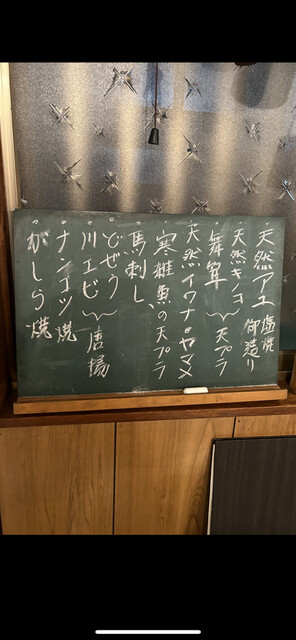 ・天然アユ 塩焼 御造り
・天然キノコ
・舞茸 } 天プラ
・天然イワナ・ヤマメ
寒雑魚の天プラ
馬刺し
・どぜう
・川エビ } 唐揚
・ナンコツ焼
・がしら焼